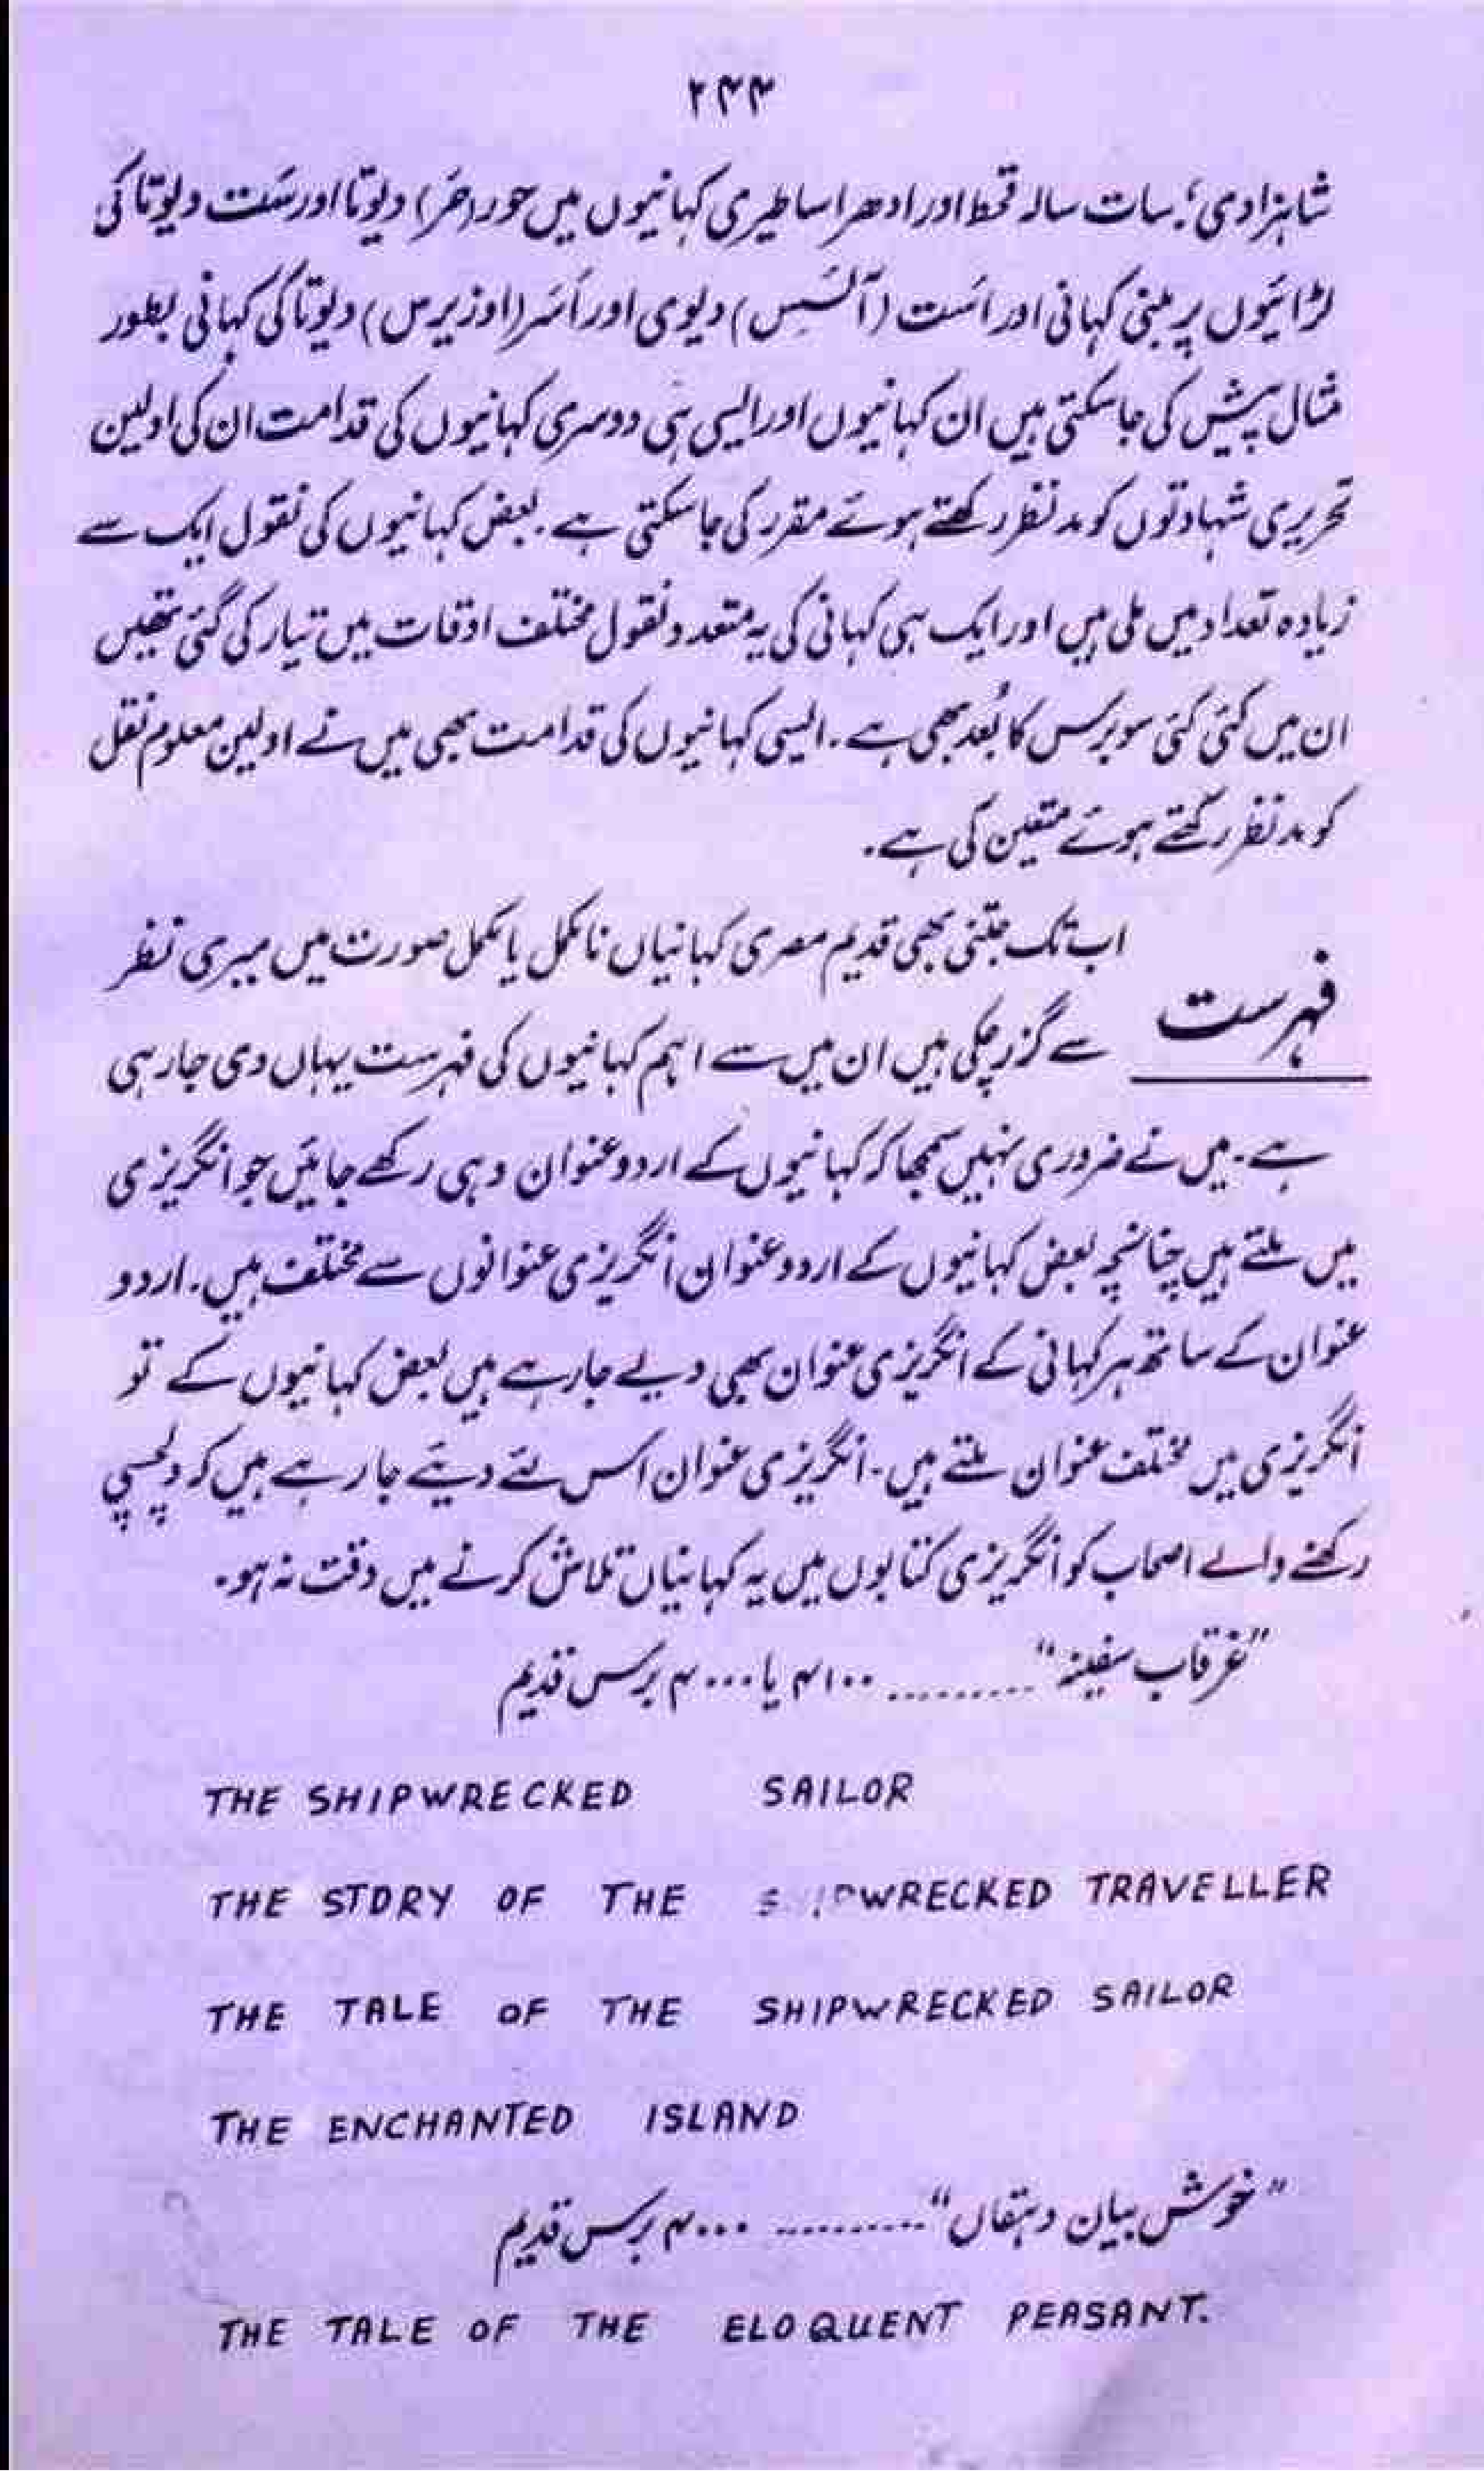 ۲۴۴
شاہزادی؛ سات سالہ قحط اور ادھر اساطیری کہانیوں میں حور (حَر) دیوتا اور سَت دیوتا کی
لڑائیوں پر مبنی کہانی اور اَست (آئسِس) دیوی اور اَسَر (اوزیرس) دیوتا کی کہانی بطور
مثال پیش کی جاسکتی ہیں ان کہانیوں اور ایسی ہی دوسری کہانیوں کی قدامت ان کی اولین
تحریری شہادتوں کو مدنظر رکھتے ہوئے مقرر کی جاسکتی ہے۔ بعض کہانیوں کی نقول ایک سے
زیادہ تعداد میں ملی ہیں اور ایک ہی کہانی کی یہ متعدد نقول مختلف اوقات میں تیار کی گئی تھیں
ان میں کئی کئی سو برس کا بُعد بھی ہے۔ ایسی کہانیوں کی قدامت بھی میں نے اولین معلوم نقل
کو مدنظر رکھتے ہوئے متعین کی ہے۔
فہرست
اب تک جتنی بھی قدیم مصری کہانیاں نامکمل یا مکمل صورت میں میری نظر
سے گزر چکی ہیں ان میں سے اہم کہانیوں کی فہرست یہاں دی جا رہی
ہے۔ میں نے ضروری نہیں سمجھا کہ کہانیوں کے اردو عنوان وہی رکھے جائیں جو انگریزی
میں ملتے ہیں چنانچہ بعض کہانیوں کے اردو عنوان انگریزی عنوانوں سے مختلف ہیں۔ اردو
عنوان کے ساتھ ہر کہانی کے انگریزی عنوان بھی دیے جا رہے ہیں بعض کہانیوں کے تو
انگریزی میں مختلف عنوان ملتے ہیں۔ انگریزی عنوان اس لئے دیئے جا رہے ہیں کہ دلچسپی
رکھنے والے اصحاب کو انگریزی کتابوں میں یہ کہانیاں تلاش کرنے میں دقت نہ ہو۔
"غرقاب سفینہ" .......... ۴۱۰۰ یا ۴۰۰۰ برس قدیم
THE SHIPWRECKED SAILOR
THE STORY OF THE SHIPWRECKED TRAVELLER
THE TALE OF THE SHIPWRECKED SAILOR
THE ENCHANTED ISLAND
"خوش بیان دہقاں" .......... ۴۰۰۰ برس قدیم
THE TALE OF THE ELOQUENT PEASANT.